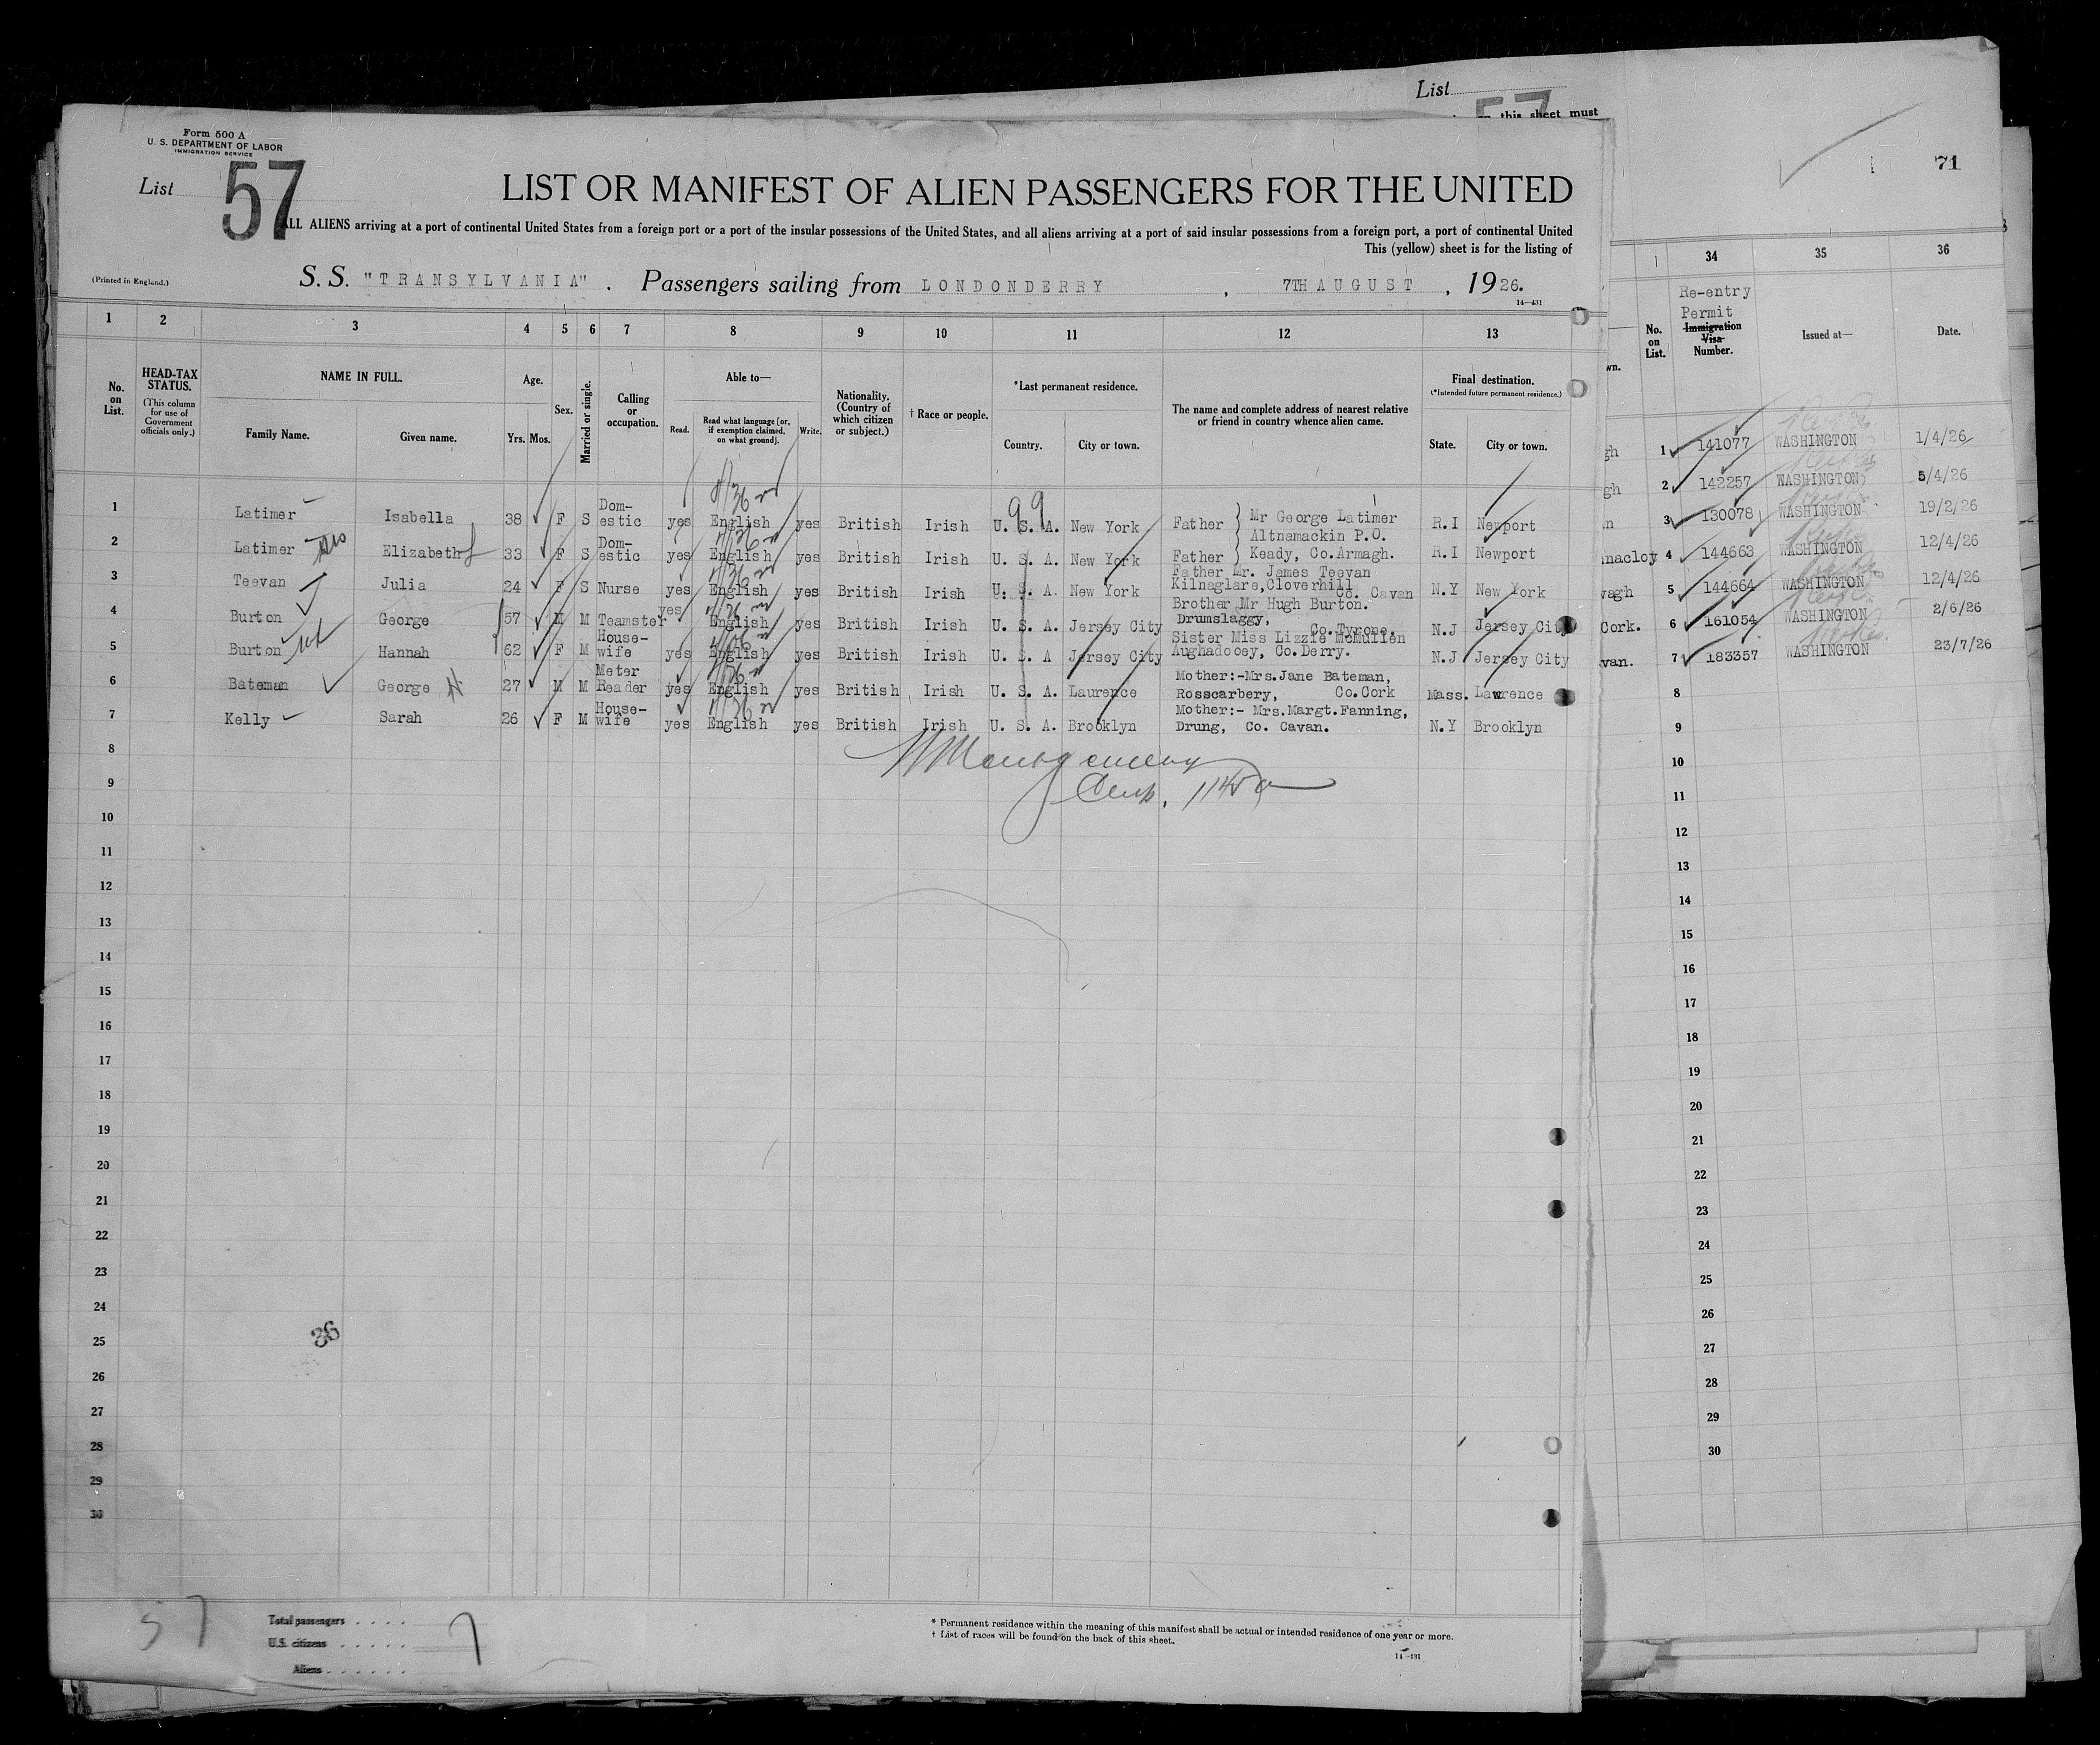 List
57
on this sheet must
71
Form 500 A
U. S. DEPARTMENT OF LABOR
IMMIGRATION SERVICE
List 57
LIST OR MANIFEST OF ALIEN PASSENGERS FOR THE UNITED
ALL ALIENS arriving at a port of continental United States from a foreign port or a port of the insular possessions of the United States, and all aliens arriving at a port of said insular possessions from a foreign port, a port of continental United
This (yellow) sheet is for the listing of
(Printed in England.)
S. S. "TRANSYLVANIA" . Passengers sailing from LONDONDERRY , 7TH AUGUST , 1926.
14—431
1 2 3 4 5 6 7 8 9 10 11 12 13
No. on List.
HEAD-TAX STATUS.
(This column for use of Government officials only.)
NAME IN FULL.
Family Name. Given name.
Age.
Yrs. Mos.
Sex.
Married or single.
Calling or occupation.
Able to—
Read. Read what language [or, if exemption claimed, on what ground]. Write.
Nationality. (Country of which citizen or subject.)
† Race or people.
*Last permanent residence.
Country. City or town.
The name and complete address of nearest relative or friend in country whence alien came.
Final destination.
(*Intended future permanent residence.)
State. City or town.
99
1 Latimer Isabella 38 F S Dom-estic yes English yes British Irish U. S. A. New York Father } Mr George Latimer R.I Newport
Altnamackin P.O.
2 Latimer sis Elizabeth 33 F S Dom-estic yes English yes British Irish U. S. A. New York Father } Keady, Co.Armagh. R.I Newport
3 Teevan Julia 24 F S Nurse yes English yes British Irish U. S. A. New York Father Mr. James Teevan Kilnaglare,Cloverhill Co. Cavan N.Y New York
4 Burton George 57 M M Teamster yes English yes British Irish U. S. A. Jersey City Brother Mr Hugh Burton. Drumslaggy, Co.Tyrone. N.J Jersey City
5 Burton Hannah 62 F M House-wife yes English yes British Irish U. S. A Jersey City Sister Miss Lizzie McMullen Aughadooey, Co.Derry. N.J Jersey City
6 Bateman George 27 M M Meter Reader yes English yes British Irish U. S. A. Laurence Mother:-Mrs.Jane Bateman, Rosscarbery, Co.Cork Mass. Lawrence
7 Kelly Sarah 26 F M House-wife yes English yes British Irish U. S. A. Brooklyn Mother:- Mrs.Margt.Fanning, Drung, Co. Cavan. N.Y Brooklyn
8
9
10
11
12
13
14
15
16
17
18
19
20
21
22
23
24
25
26
27
28
29
30
36
57
Total passengers . . . . 7
U.S. citizens . . . . .
Aliens . . . . . .
* Permanent residence within the meaning of this manifest shall be actual or intended residence of one year or more.
† List of races will be found on the back of this sheet.
14—431
34 35 36
wn.
No. on List.
Re-entry
Permit
Immigration
Visa
Number.
Issued at—
Date.
gh 1 141077 WASHINGTON 1/4/26
gh 2 142257 WASHINGTON 5/4/26
n 3 130078 WASHINGTON 19/2/26
nacloy 4 144663 WASHINGTON 12/4/26
vagh 5 144664 WASHINGTON 12/4/26
Cork. 6 161054 WASHINGTON 2/6/26
van. 7 183357 WASHINGTON 23/7/26
8
9
10
11
12
13
14
15
16
17
18
19
20
21
22
23
24
25
26
27
28
29
30